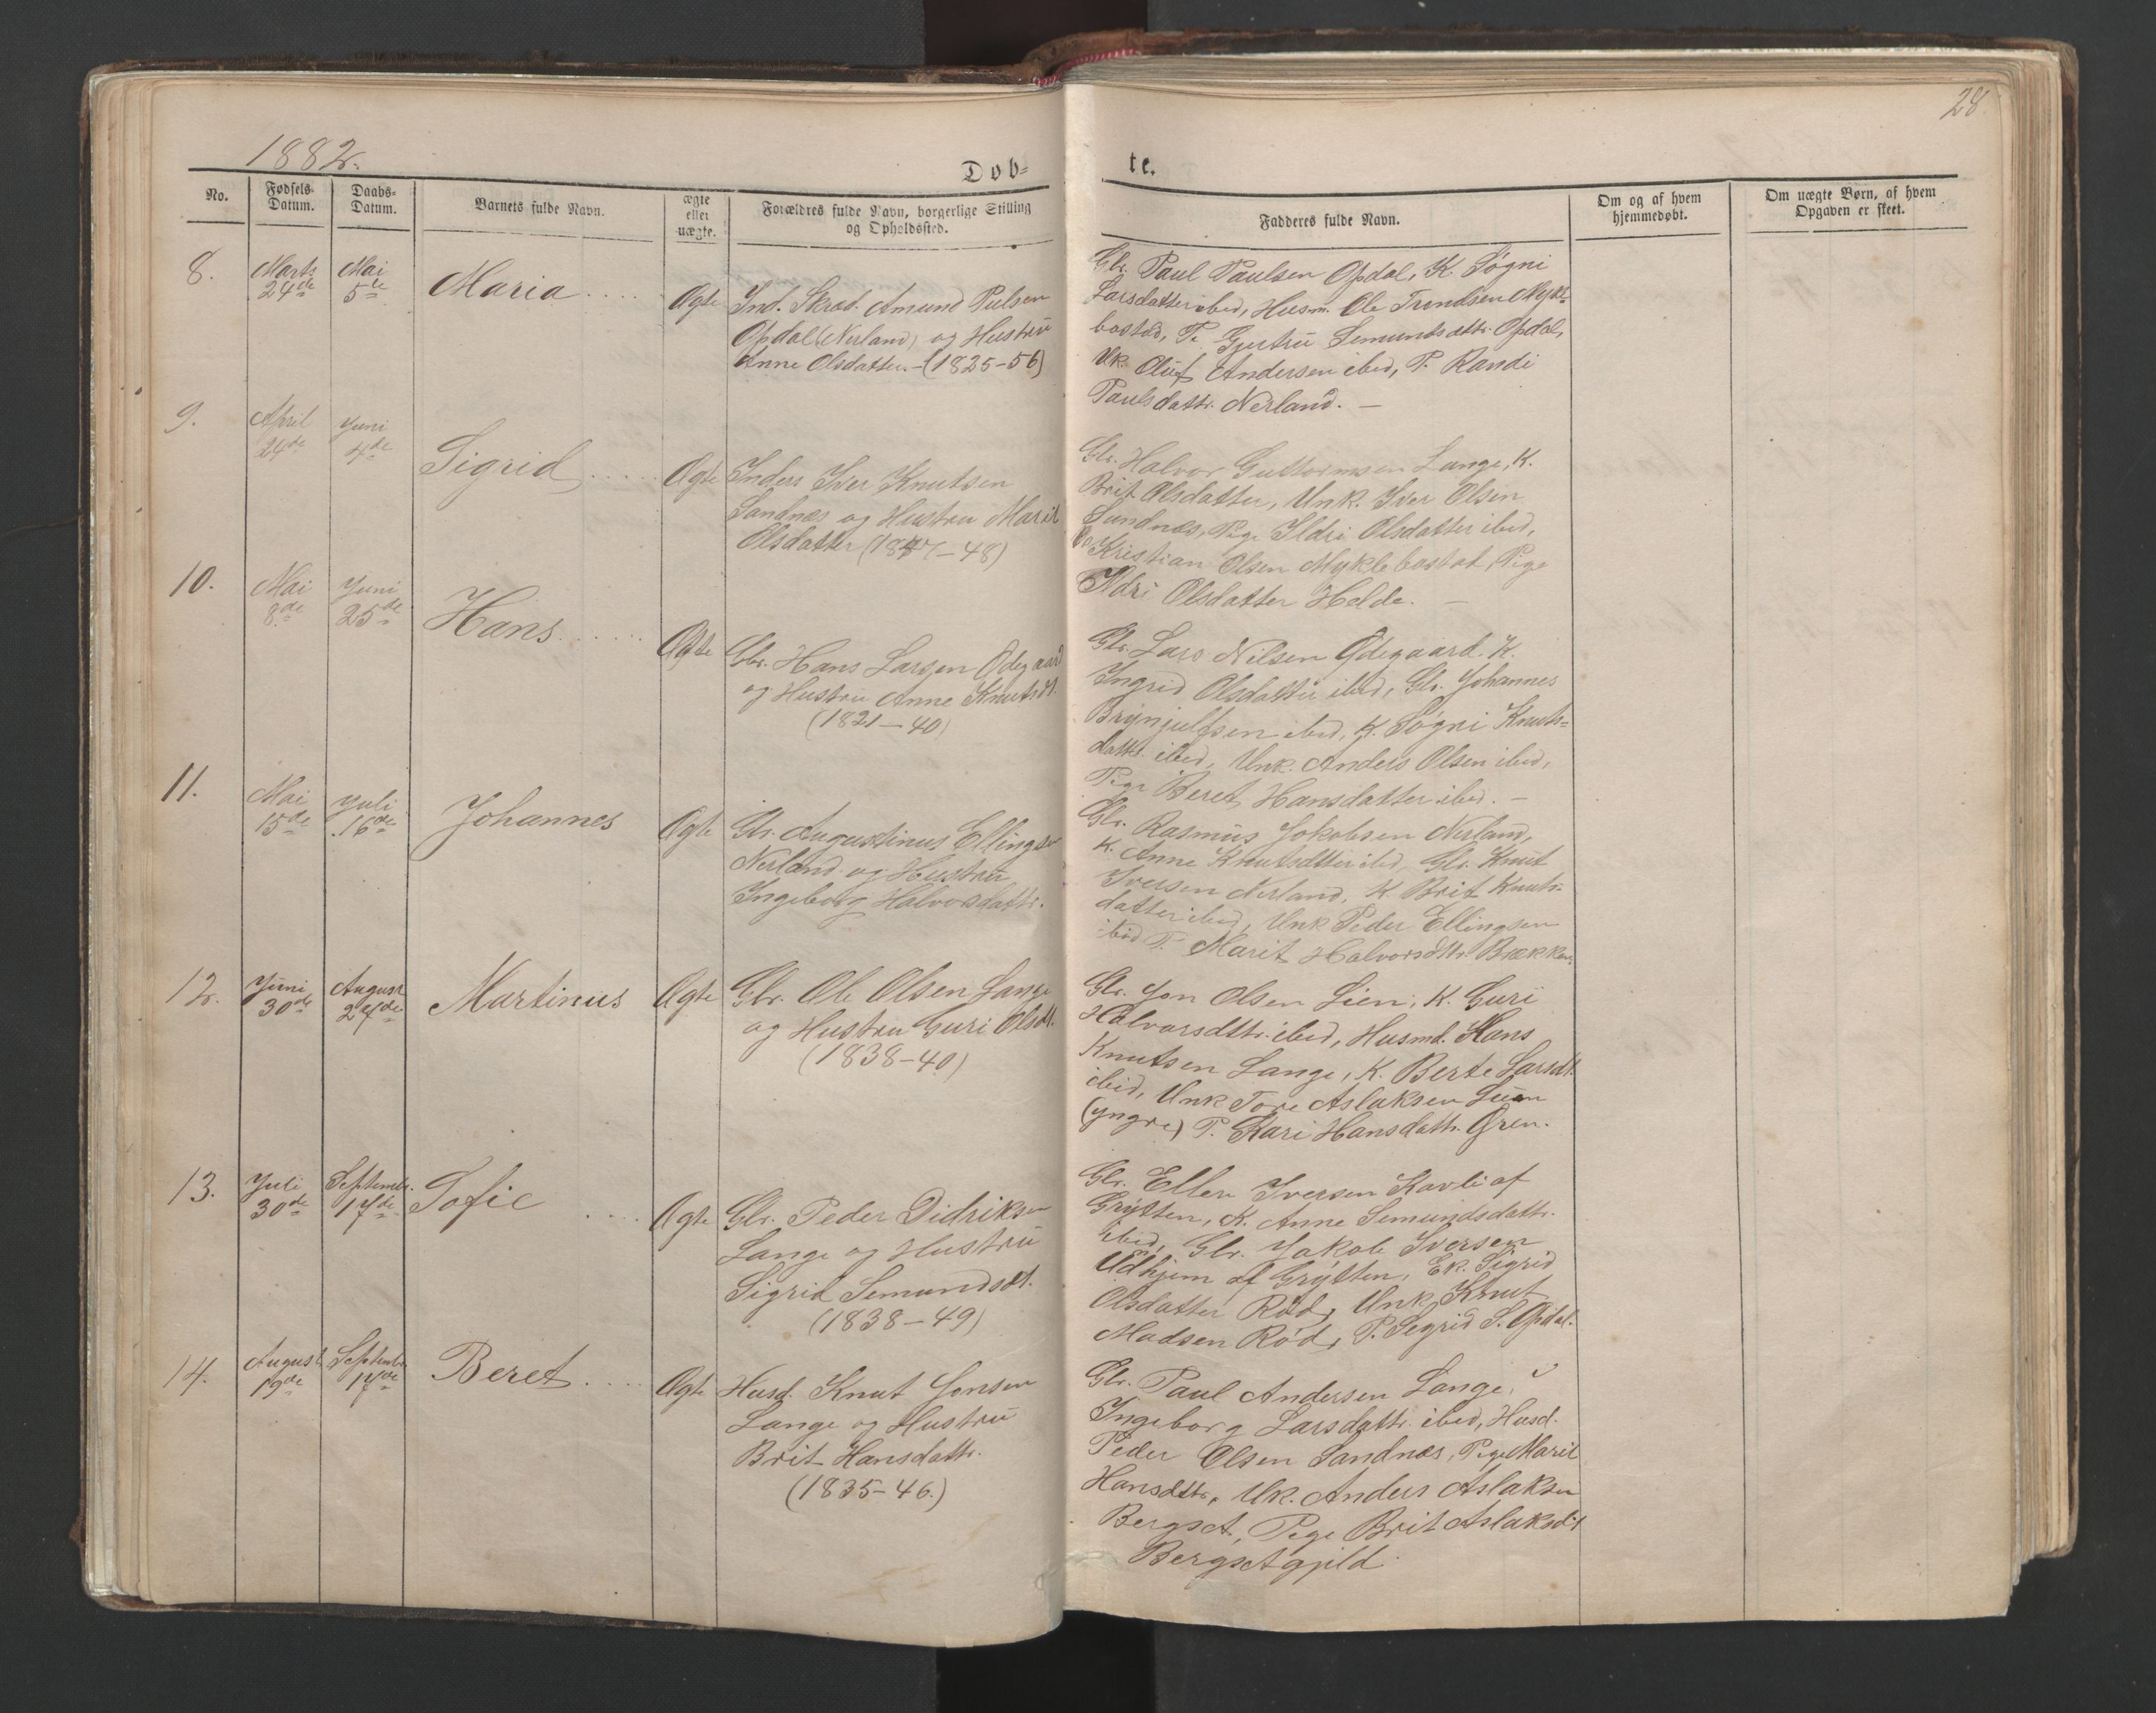 28
1882.
Døb-
te.
No.
Fødsels-
Datum.
Daabs-
Datum.
Barnets fulde Navn.
ægte
eller
uægte.
Forældres fulde Navn, borgerlige Stilling
og Opholdssted.
Fadderes fulde Navn.
Om og af hvem
hjemmedøbt.
Om uægte Børn, af hvem
Opgaven er skeet.
8.
Marts
24de
Mai
5te
Maria
Ægte
Ind. Skrad. Amund Pulsen
Opdal (Nerland) og Hustru
Anne Olsdatter. - (1825-56)
Gbr. Paul Paulsen Opdal, K. Søgni
Larsdatter ibid, Husm. Ole Trondsen Mykle-
bostad, P. Gjertru Semundsdattr. Opdal,
Uk. Oluf Andersen ibid, P. Randi
Paulsdattr. Nerland. -
9.
April
24de
Juni
4de
Sigrid
Ægte
Inders Iver Knutsen
Sandnæs og Hustru Marit
Olsdatter (1847-48)
Gbr. Halvor Guttormsen Lange, K.
Brit Olsdatter, Unk. Iver Olsen
Sandnæs, Pige Ildri Olsdatter ibid,
Kristian Olsen Myklebostad, Pige
Ildri Olsdatter Helde. -
10.
Mai
8de
Juni
25de
Hans
Ægte
Gbr. Hans Larsen Ødegaard
og Hustru Anne Knutsdt.
(1821-40)
Gbr. Lars Nilsen Ødegaard. K.
Ingrid Olsdatter ibid, Gbr. Johannes
Brynjulfsen ibid, K. Søgni Knuts-
dattr. ibid, Unk. Anders Olsen ibid,
Pige Beret Hansdatter ibid. -
11.
Mai
15de
Juli
16de
Johannes
Ægte
Gbr. Augustinus Ellingsen
Nerland og Hustru
Ingeborg Halvorsdattr.
Gbr. Rasmus Jokobsen Nerland,
K. Anne Knutsdtter ibid, Gbr. Knut
Iversen Nerland, K. Brit Knuts-
datter ibid, Unk Peder Ellingsen
ibid P. Marit Halvorsdttr. Brækken.
12.
Juni
30de
August
27de
Martinus
Ægte
Gbr. Ole Olsen Lange
og Hustru Guri Olsdt.
(1838-40)
Gbr. Jon Olsen Lien, K. Guri
Halvorsdttr. ibid, Husmd. Hans
Knutsen Lange, K. Berte Larsdt.
ibid, Unk Tore Aslaksen Lien
(yngre) P. Kari Hansdattr. Gren.
13.
Juli
30de
Septembr.
17de
Sofie
Ægte
Gbr. Peder Didriksen
Lange og Hustru
Sigrid Semundsdt.
(1838-49)
Gbr. Ellen Iversen Kavli af
Grytten, K. Anne Semundsdattr.
ibid, Gbr. Jakob Iversen
Udhjem af Grytten, Ek. Sigrid
Olsdatter Rød, Unk Knut
Madsen Rød, P. Segrid S. Opdal.
14.
August
19de
Septembr
17de
Beret
Ægte
Husd. Knut Jonsen
Lange og Hustru
Brit Hansdattr.
(1835-46.)
Gbr. Paul Andersen Lange,
Ingeborg Larsdattr. ibid, Husd.
Peder Olsen Sandnæs, Pige Marit
Hansdttr, Uk. Anders Aslaksen
Bergset, Pige Brit Aslaksdt
Bergsetgjild